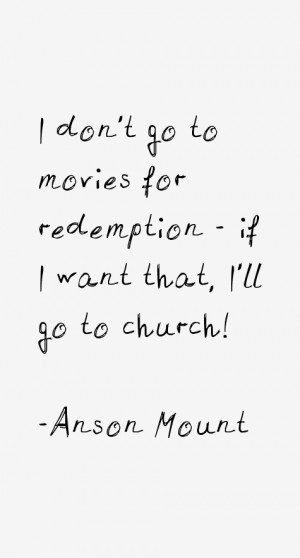 I don't go to
movies for
redemption - if
I want that, I'll
go to church!
-Anson Mount